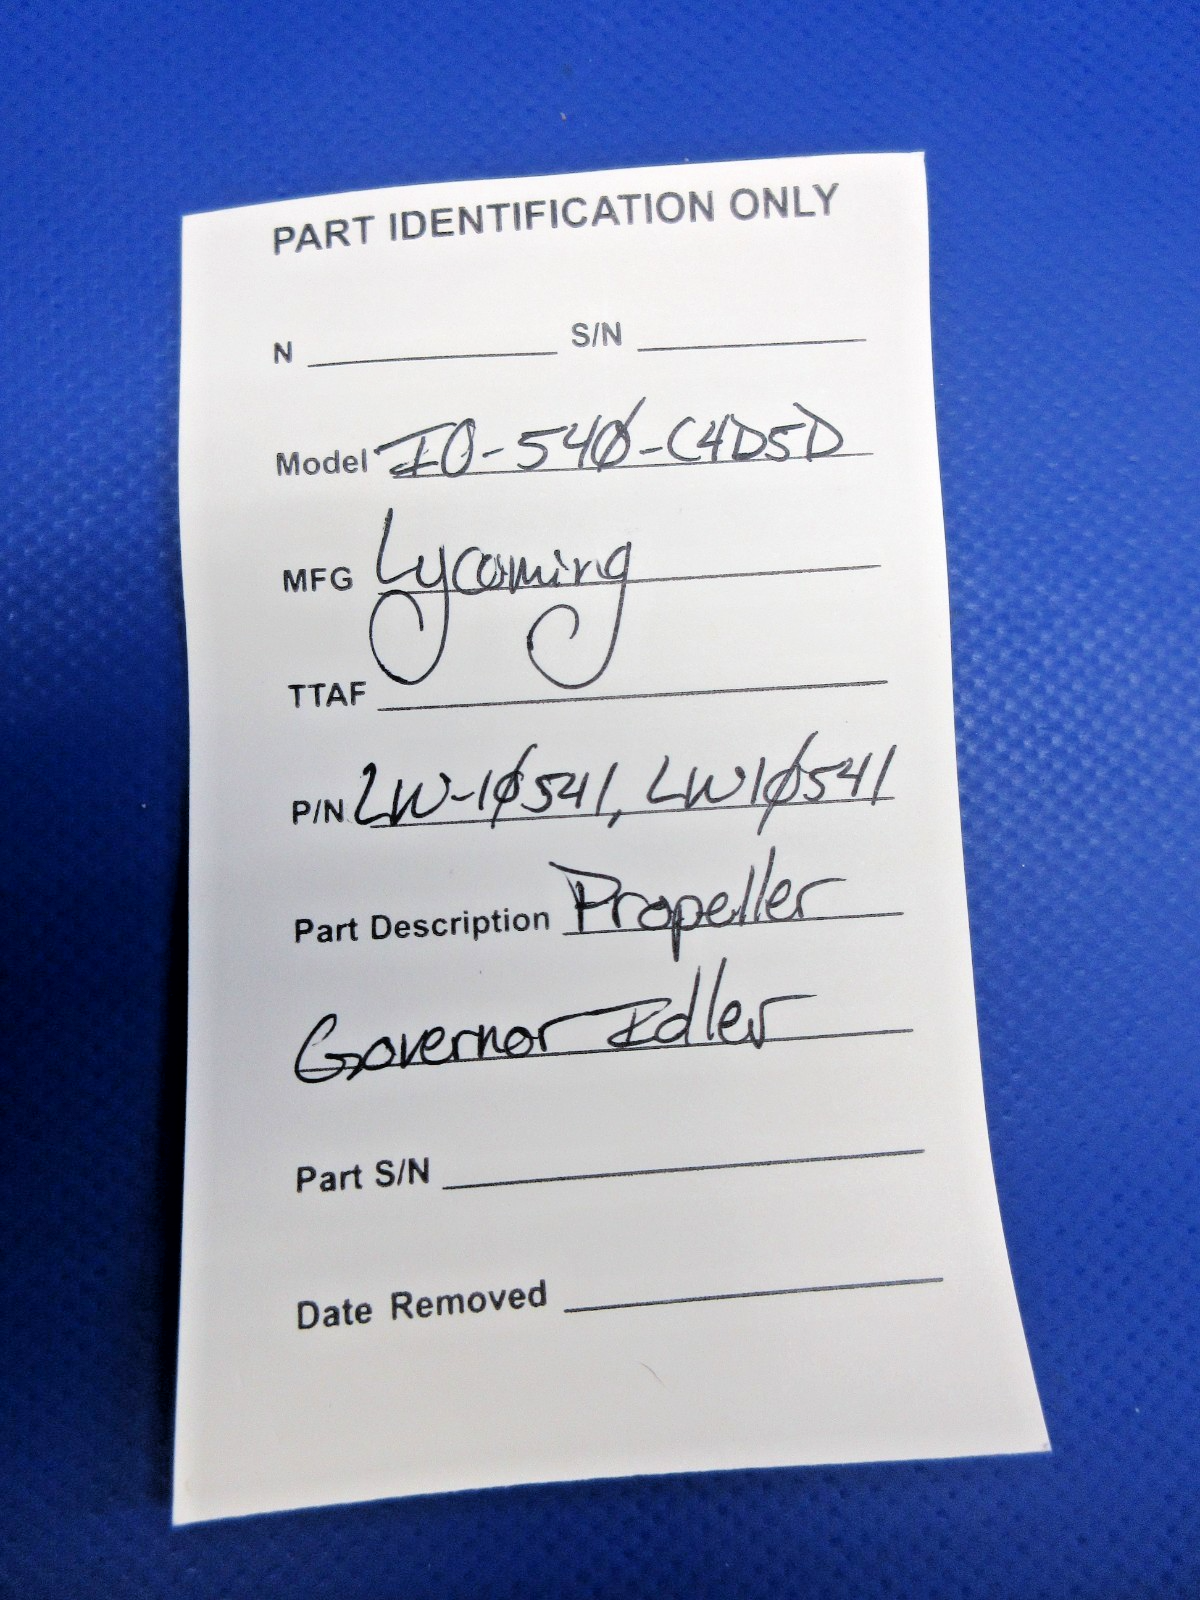 PART IDENTIFICATION ONLY
N S/N
Model IO-540-C4D5D
MFG Lycoming
TTAF
P/N LW-10541, LW10541
Part Description Propeller
Governor Idler
Part S/N
Date Removed